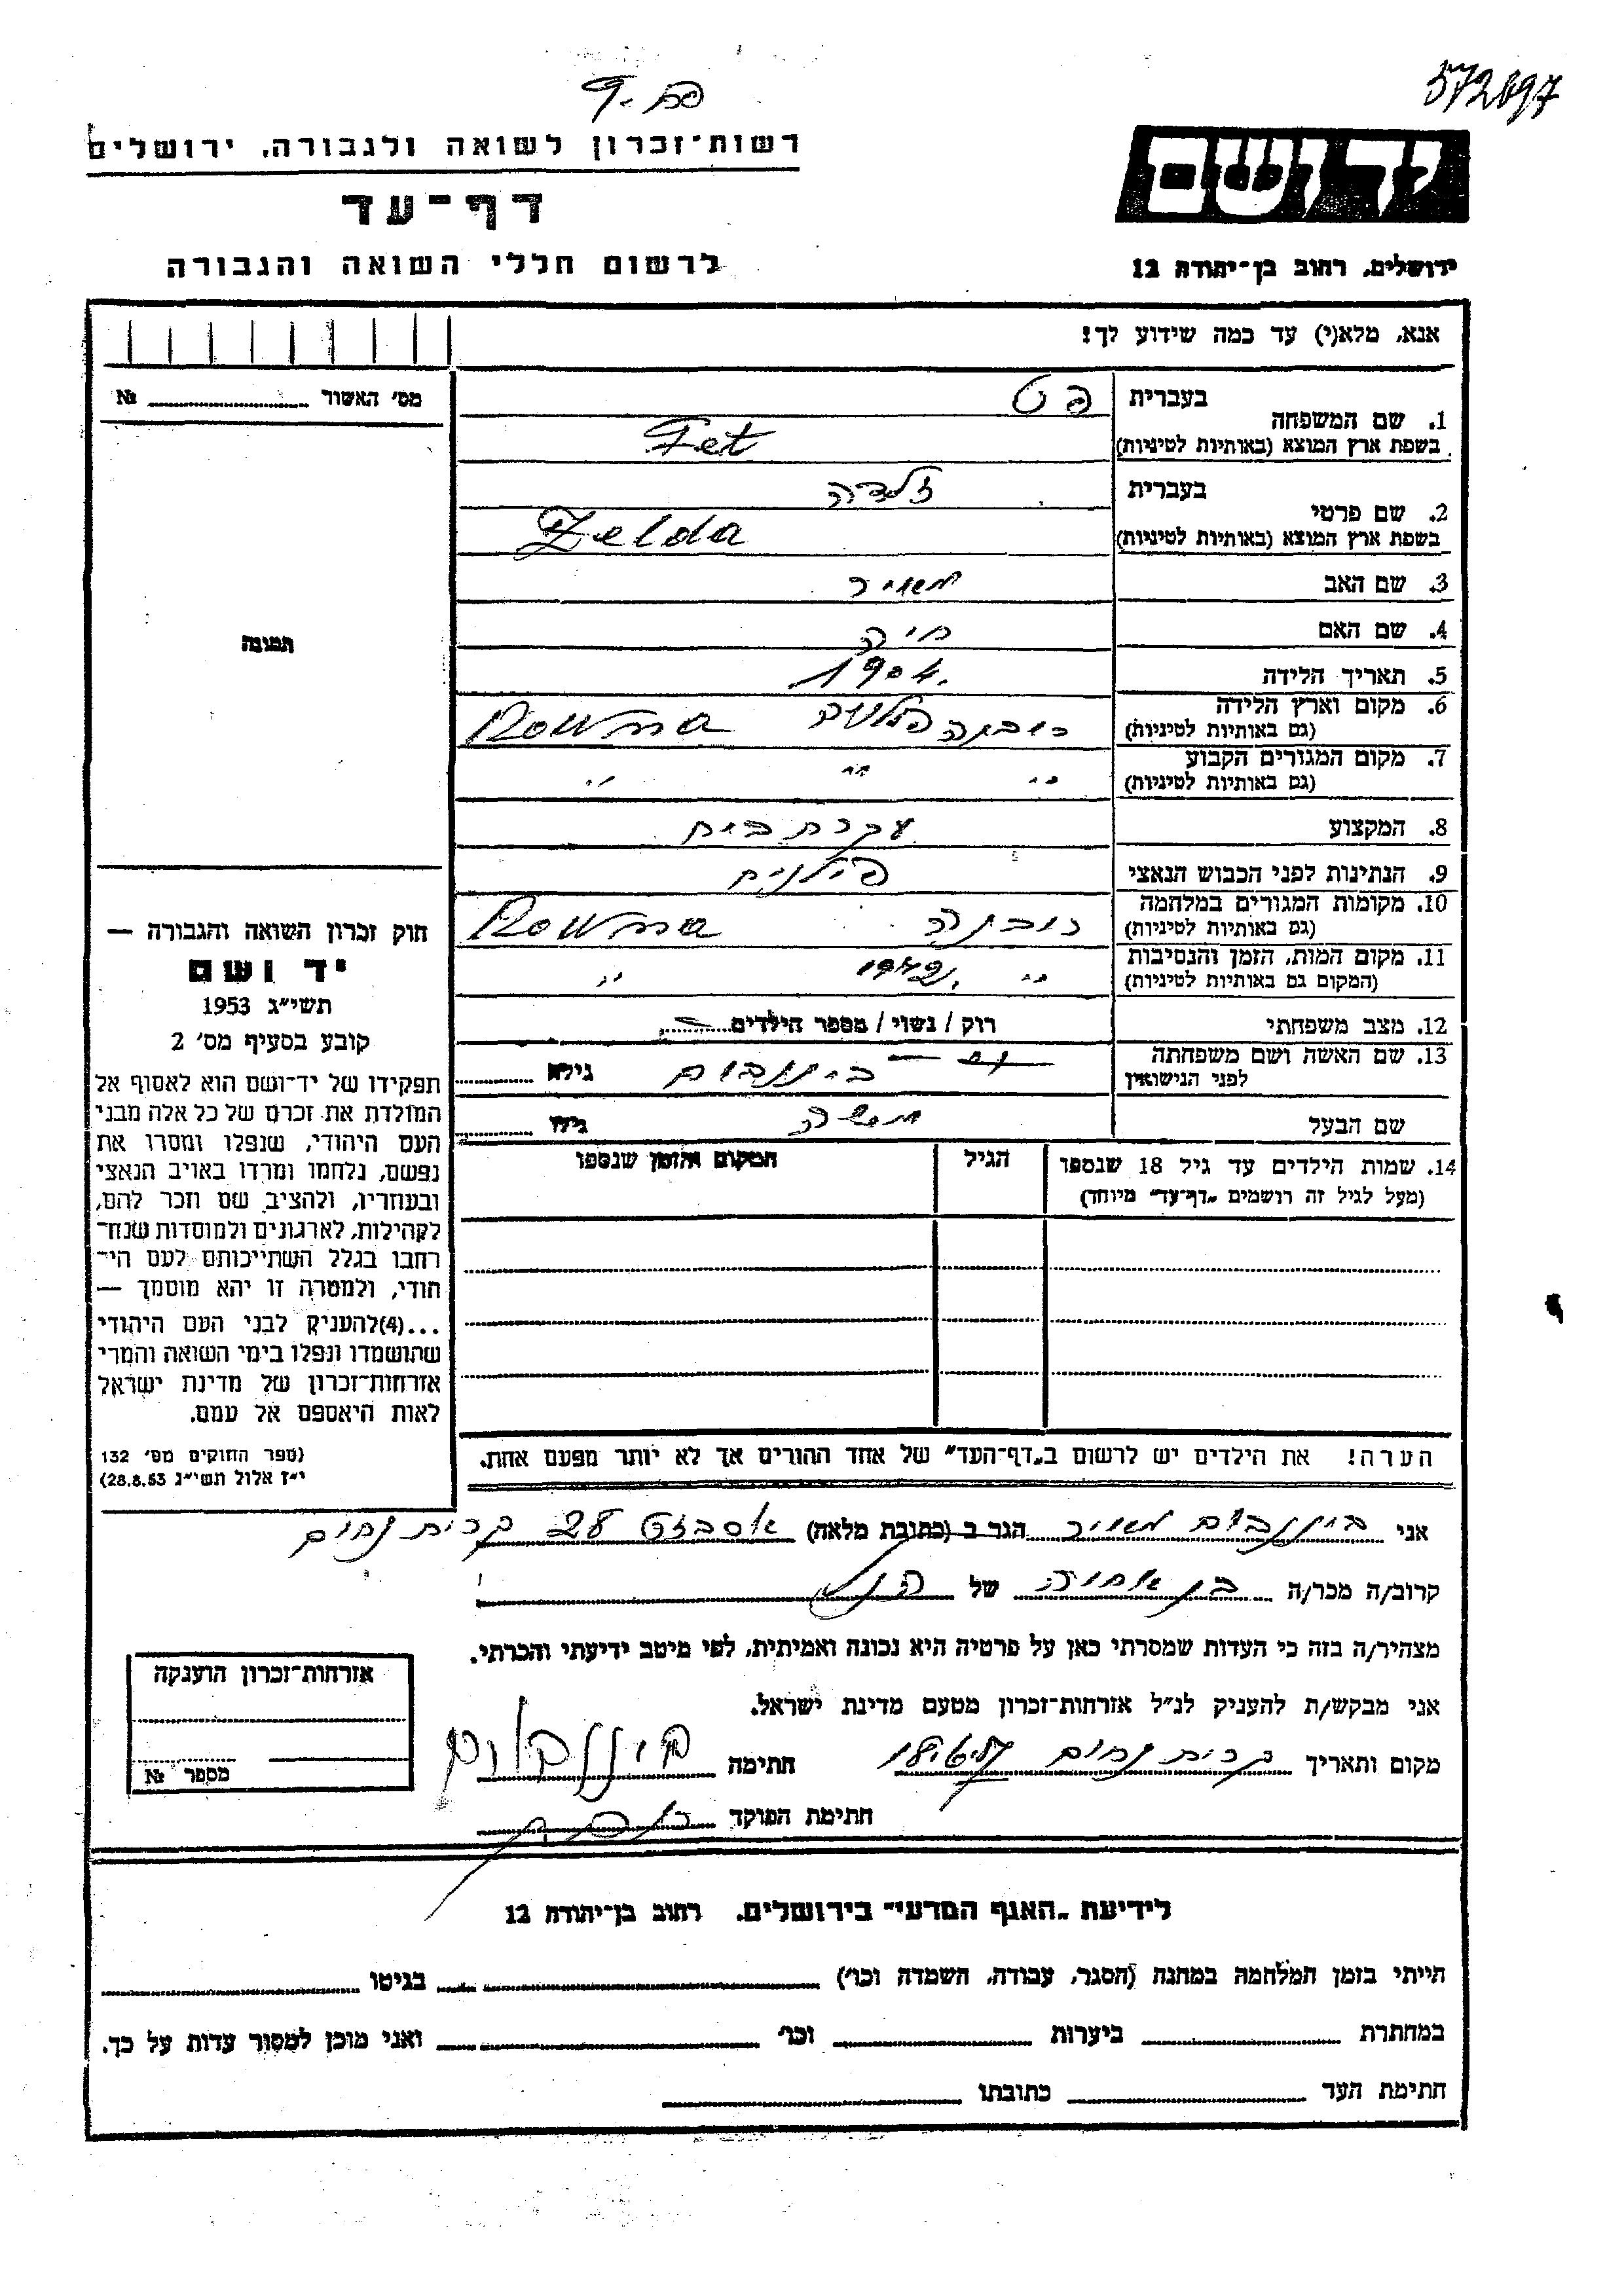 572697
רשות־זכרון לשואה ולגבורה, ירושלים
דף־עד
לרשום חללי השואה והגבורה
יד ושם
ירושלים, רחוב בן־יהודה 12
אנא, מלא(י) עד כמה שידוע לך!
מס׳ האשור № 
1. שם המשפחה בעברית פט
בשפת ארץ המוצא (באותיות לטיניות) Fet
2. שם פרטי בעברית זלדה
בשפת ארץ המוצא (באותיות לטיניות) Zelda
3. שם האב מאיר
4. שם האם חיה
5. תאריך הלידה 1904.
6. מקום וארץ הלידה
(גם באותיות לטיניות) רובנה פולניה Rowna
7. מקום המגורים הקבוע
(גם באותיות לטיניות) " " "
8. המקצוע עקרת בית
9. הנתינות לפני הכבוש הנאצי פולנית
10. מקומות המגורים במלחמה
(גם באותיות לטיניות) רובנה Rowna
11. מקום המות, הזמן והנסיבות
(המקום גם באותיות לטיניות) " 1942. "
12. מצב משפחתי רווק / נשוי / מספר הילדים
13. שם האשה ושם משפחתה
לפני הנישואין בירנבוים גילא
שם הבעל משה גילו
14. שמות הילדים עד גיל 18 שנספו הגיל המקום והזמן שנספו
(מעל לגיל זה רושמים „דף־עד״ מיוחד)
תמונה
חוק זכרון השואה והגבורה —
יד ושם
תשי״ג 1953
קובע בסעיף מס׳ 2
תפקידו של יד־ושם הוא לאסוף אל
המולדת את זכרם של כל אלה מבני
העם היהודי, שנפלו ומסרו את
נפשם, נלחמו ומרדו באויב הנאצי
ובעוזריו, ולהציב שם וזכר להם,
לקהילות, לארגונים ולמוסדות שנח־
רבו בגלל השתייכותם לעם הי־
הודי, ולמטרה זו יהא מוסמך —
...(4)להעניק לבני העם היהודי
שהושמדו ונפלו בימי השואה והמרי
אזרחות־זכרון של מדינת ישראל
לאות היאספם אל עמם.
(ספר החוקים מס׳ 132
י״ז אלול תשי״ג 28.8.53)
הערה! את הילדים יש לרשום ב„דף־העד״ של אחד ההורים אך לא יותר מפעם אחת.
אני בירנבוים מאיר הגר ב (כתובת מלאה) אסבזט 28 קרית נחום
קרוב/ה מכר/ה בן אחיה של הנ״ל
מצהיר/ה בזה כי העדות שמסרתי כאן על פרטיה היא נכונה ואמיתית, לפי מיטב ידיעתי והכרתי.
אני מבקש/ת להעניק לנ״ל אזרחות־זכרון מטעם מדינת ישראל.
מקום ותאריך קרית נחום חתימה בירנבוים
חתימת הפוקד
אזרחות־זכרון הוענקה
מספר №
לידיעת „האגף המדעי״ בירושלים, רחוב בן־יהודה 12
הייתי בזמן המלחמה במחנה (הסגר, עבודה, השמדה וכו׳) בגיטו
במחתרת ביערות וכו׳ ואני מוכן למסור עדות על כך.
חתימת העד כתובתו